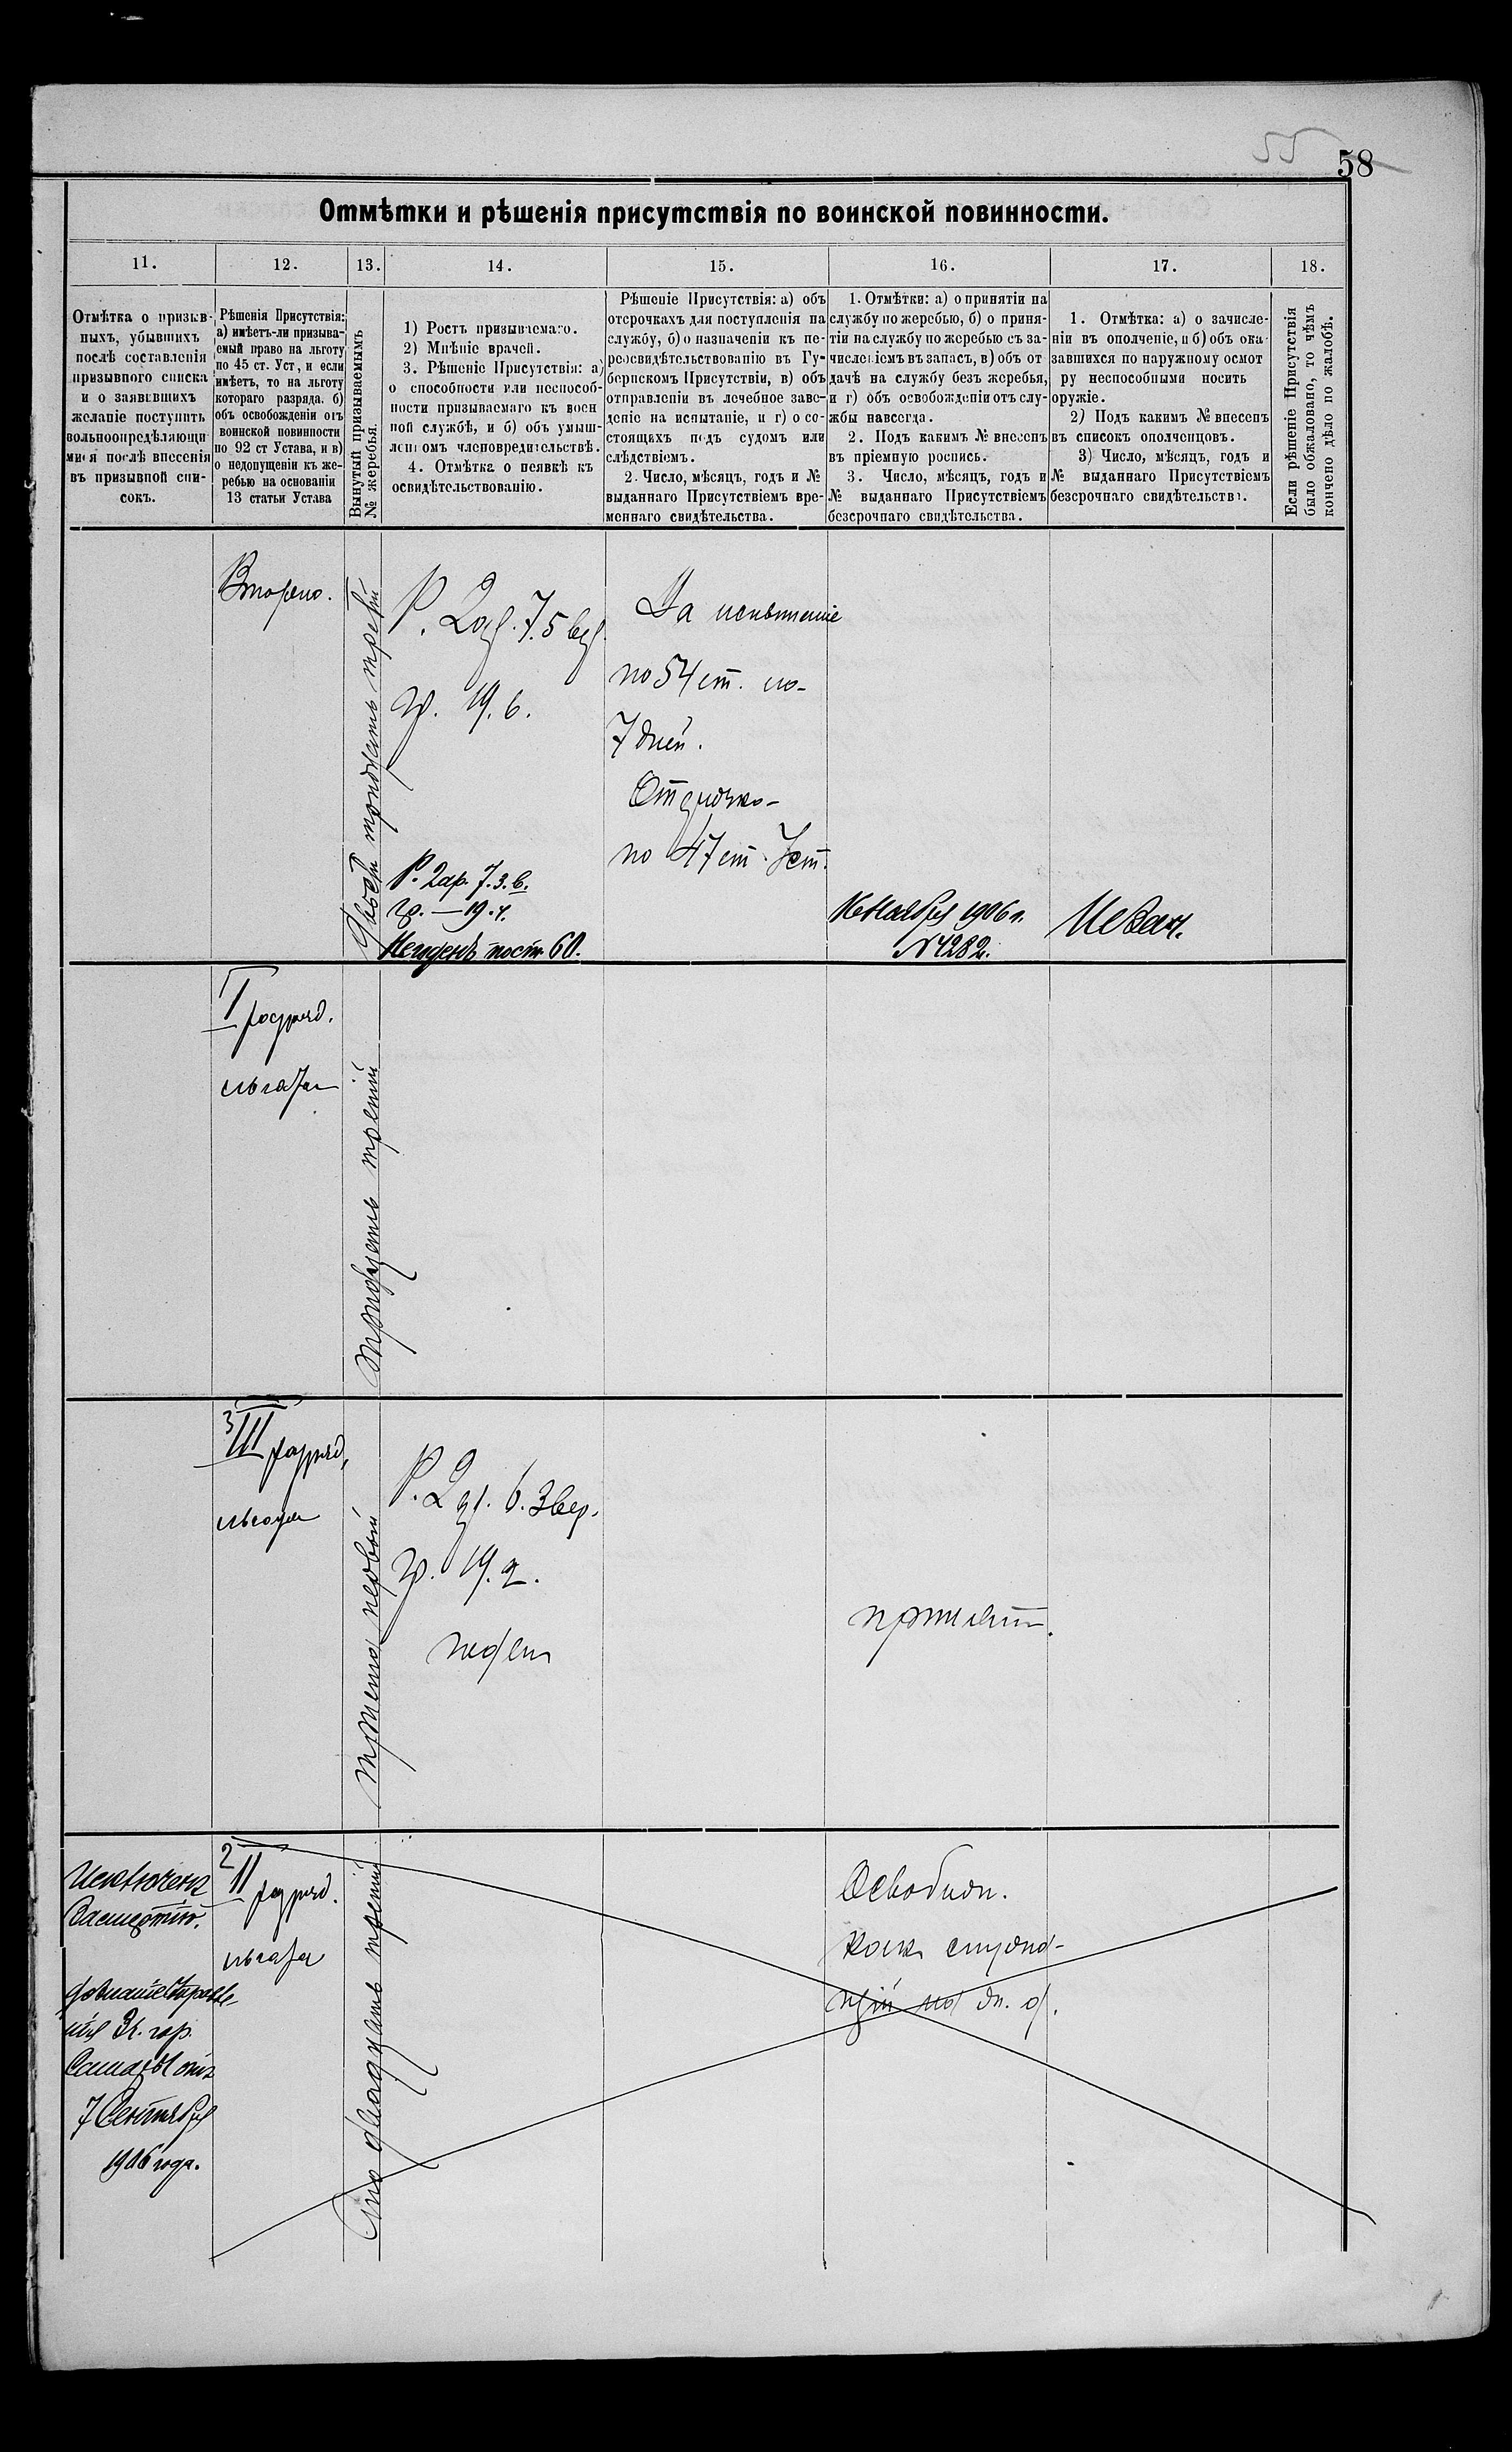 55
58
Отмѣтки и рѣшенія присутствія по воинской повинности.
11.
12.
13.
14.
15.
16.
17.
18.
Отмѣтка о призыв-
ныхъ, убывшихъ
послѣ составленія
призывного списка
и о заявившихъ
желаніе поступить
вольноопредѣляющи
мися послѣ внесенія
въ призывной спи-
сокъ.
Рѣшенія Присутствія:
а) имѣетъ-ли призыва-
емый право на льготу
по 45 ст. Уст, и если
имѣетъ, то на льготу
котораго разряда. б)
объ освобожденіи отъ
воинской повинности
по 92 ст Устава, и в)
о недопущеніи къ же-
ребью на основаніи
13 статьи Устава
Вынутый призываемымъ
№ жеребья.
1) Ростъ призываемаго.
2) Мнѣніе врачей.
3. Рѣшеніе Присутствія: а)
о способности или неспособ-
ности призываемаго къ воен
ной службѣ, и б) объ умыш-
ленномъ членовредительствѣ.
4. Отмѣтка о неявкѣ къ
освидѣтельствованію.
Рѣшеніе Присутствія: а) объ
отсрочкахъ для поступленія на
службу, б) о назначеніи къ пе-
реосвидѣтельствованію въ Гу-
бернскомъ Присутствіи, в) объ
отправленіи въ лечебное заве-
деніе на испытаніе, и г) о со-
стоящихъ подъ судомъ или
слѣдствіемъ.
2. Число, мѣсяцъ, годъ и №
выданнаго Присутствіемъ вре-
меннаго свидѣтельства.
1. Отмѣтки: а) о принятіи на
службу по жеребью, б) о приня-
тіи на службу по жеребью съ за-
численіемъ въ запасъ, в) объ от
дачѣ на службу безъ жеребья,
и г) объ освобожденіи отъ слу-
жбы навсегда.
2. Подъ какимъ № внесенъ
въ пріемную роспись.
3. Число, мѣсяцъ, годъ и
№ выданнаго Присутствіемъ
безсрочнаго свидѣтельства.
1. Отмѣтка: а) о зачисле-
ніи въ ополченіе, и б) объ ока
завшихся по наружному осмот
ру неспособными носить
оружіе.
2) Подъ какимъ № внесенъ
въ списокъ ополченцовъ.
3) Число, мѣсяцъ, годъ и
№ выданнаго Присутствіемъ
безсрочнаго свидѣтельства.
Если рѣшеніе Присутствія
было обжаловано, то чѣмъ
кончено дѣло по жалобѣ.
Двѣсти тридцать третій
Р. 2 ар. 7. 5 вер.
гр. 19. 6.
На испытаніе
по 54 ст. на
7 дней.
Отсрочка
по 47 ст. Уст.
Р. 2 ар. 7. 3. в.
гр. — 19. 4.
Негоденъ 60.
Ноября 1906 г.
№ 4282.
I разряд.
льгота
Тридцать третій
3 III разряд,
льгота
Триста первый
Р. 2 ар. 6. 3 вер.
гр. 19. 2.
годен
принят.
Исключенъ
За смертію.
2 II разряд.
льгота
3 ч. гор.
Самары отъ
7 Сентября
1906 года.
Сто двадцать третій
Освобожд.
как